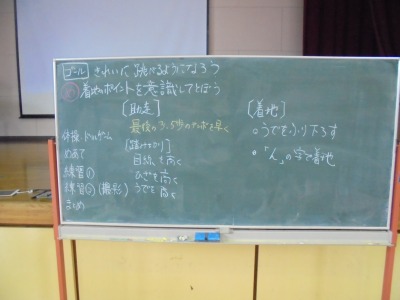 ゴール きれいに跳べるようになろう
着地のポイントを意識してとぼう
[助走]
最後の3、5歩のテンポを早く
[踏みきり]
目線を高く
ひざを高く
うでを高く
[着地]
○うでをふり下ろす
○「ん」の字で着地
めあて
練習①
練習②(撮影)
まとめ